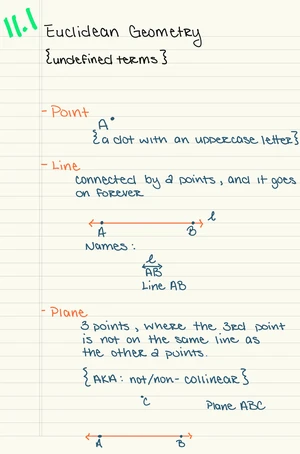 11.1 Euclidean Geometry
{undefined terms}
- Point
A
{a dot with an uppercase letter}
- Line
connected by 2 points, and it goes
on forever
l
A B
Names:
l
AB
Line AB
- Plane
3 points, where the 3rd point
is not on the same line as
the other 2 points.
{AKA: not/non-collinear}
C Plane ABC
A B